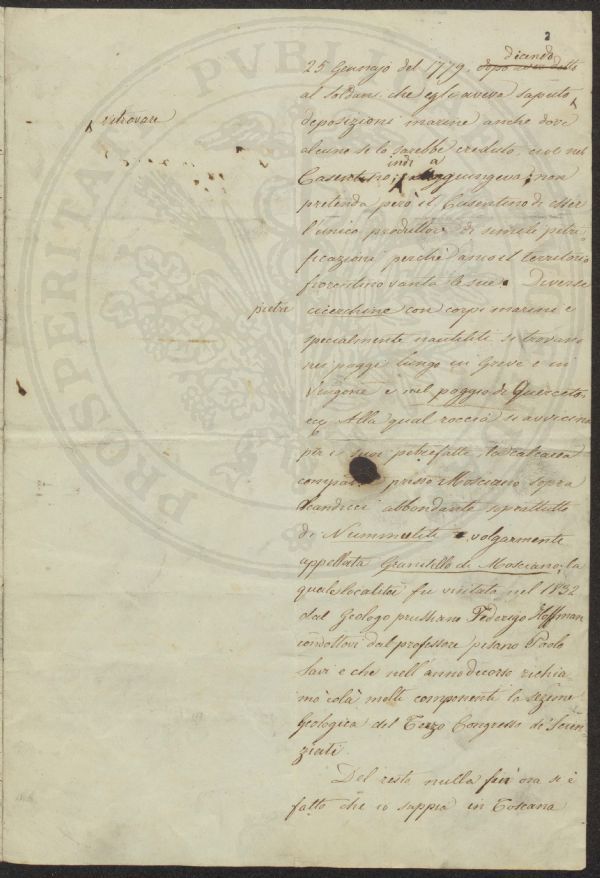 2
dicendo
25 Gennajo del 1779. dopo aver detto
al Soldani che egli aveva saputo
ritrovare
deposizioni marine anche dove
alcuno se lo sarebbe creduto, cioè nel
indi a
Casentino, soggiungeva; non
pretenda però il Casentino di esser
l'unico produttore di simile petri-
ficazioni perchè anco il territorio
fiorentino vanta le sue. Diverse
pietre
cicerchine con corpi marini e
specialmente nautiliti si trovano
nei poggi lungo in Greve e in
Vingone e nel poggio di Querceto.
Alla qual roccia si avvicina
per i suoi petrefatti, la calcarea
compatta presso Mosciano sopra
Scandicci abbondante soprattutto
di Nummuliti e volgarmente
appellata Granitello di Mosciano; la
quale località fu visitata nel 1832
dal Geologo prussiano Federigo Hoffman
condottovi dal professore pisano Paolo
Savi e che nell'anno decorso richia-
mò colà molti componenti la sezione
Geologica del Terzo Congresso de' Scien-
ziati.
Del resto nulla fin ora si è
fatto che io sappia in Toscana
PVBLI
PROSPERITA